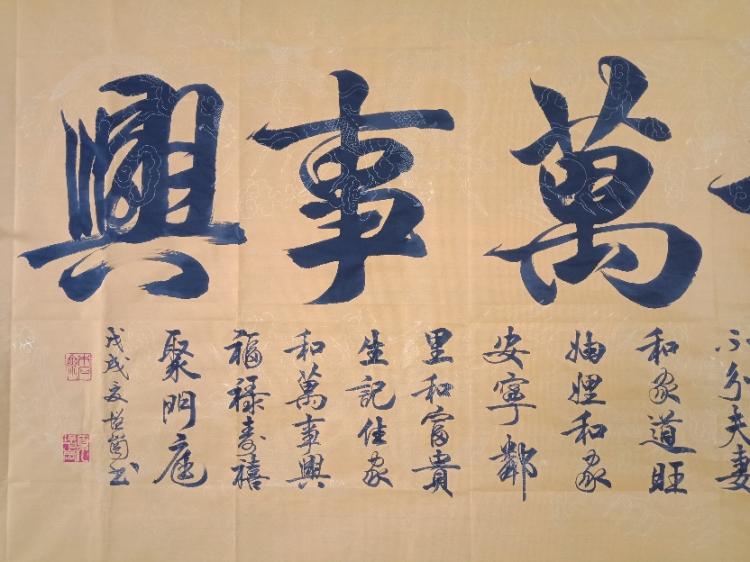 萬事興
不分夫妻
和家道旺
妯娌和家
安寧鄰
里和富貴
生記住家
和萬事興
福祿壽禧
聚門庭
戊戌夏